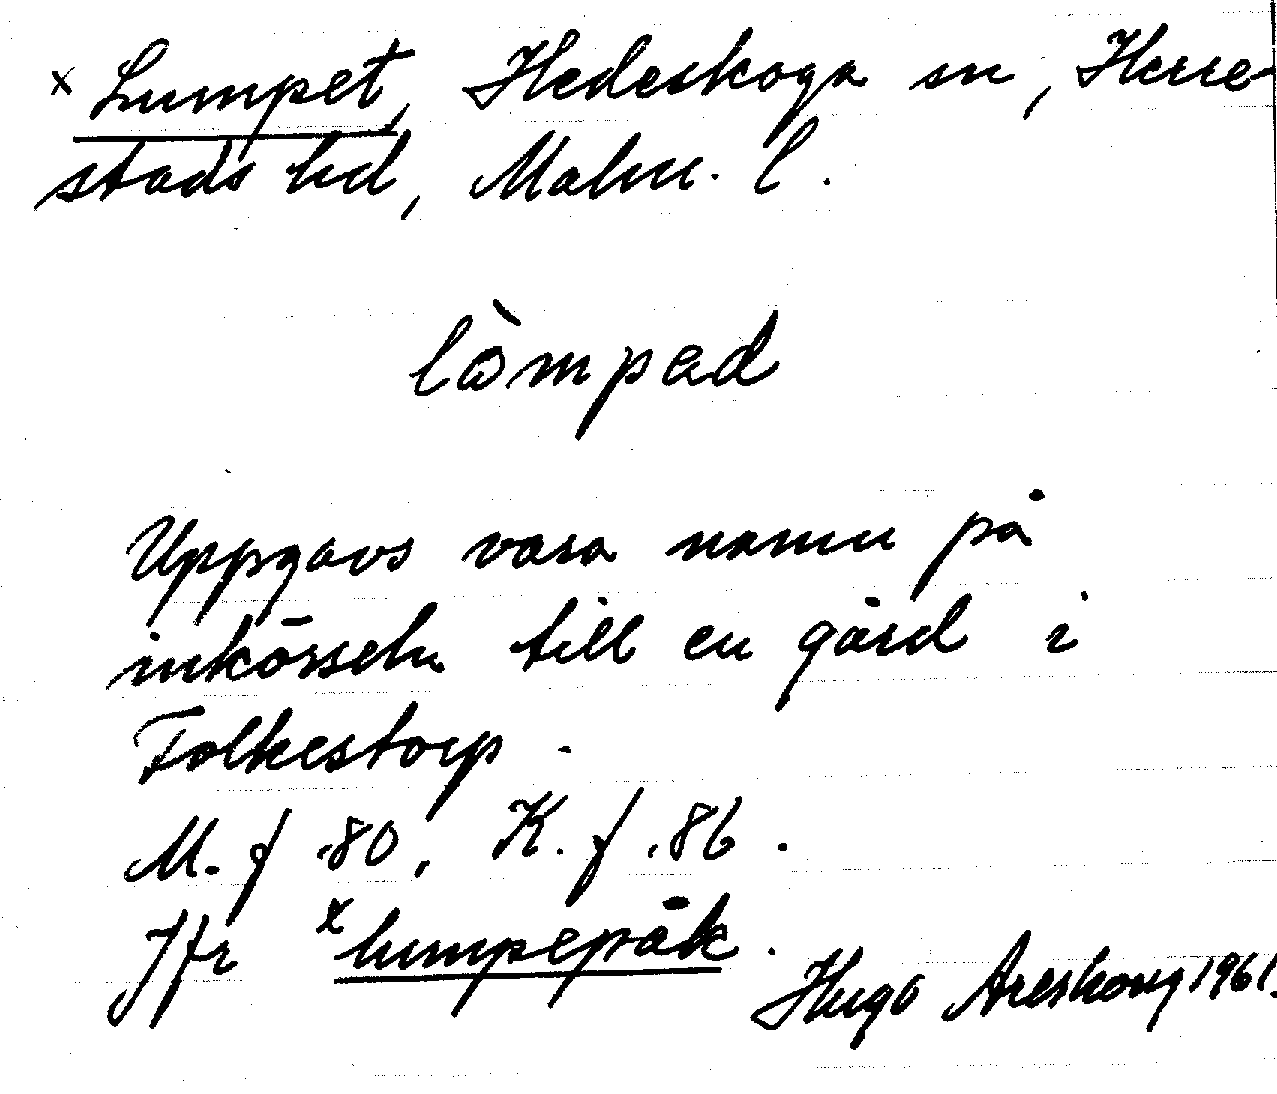 x Lumpet, Hedeskoga sn, Herre-
stads hd, Malm. l.
lòmpad
Uppgavs vara namn på
inkörseln till en gård i
Folkestorp.
M. f. 80, K. f. 86.
Jfr x lumpepåk.
Hugo Areskoug 1961.